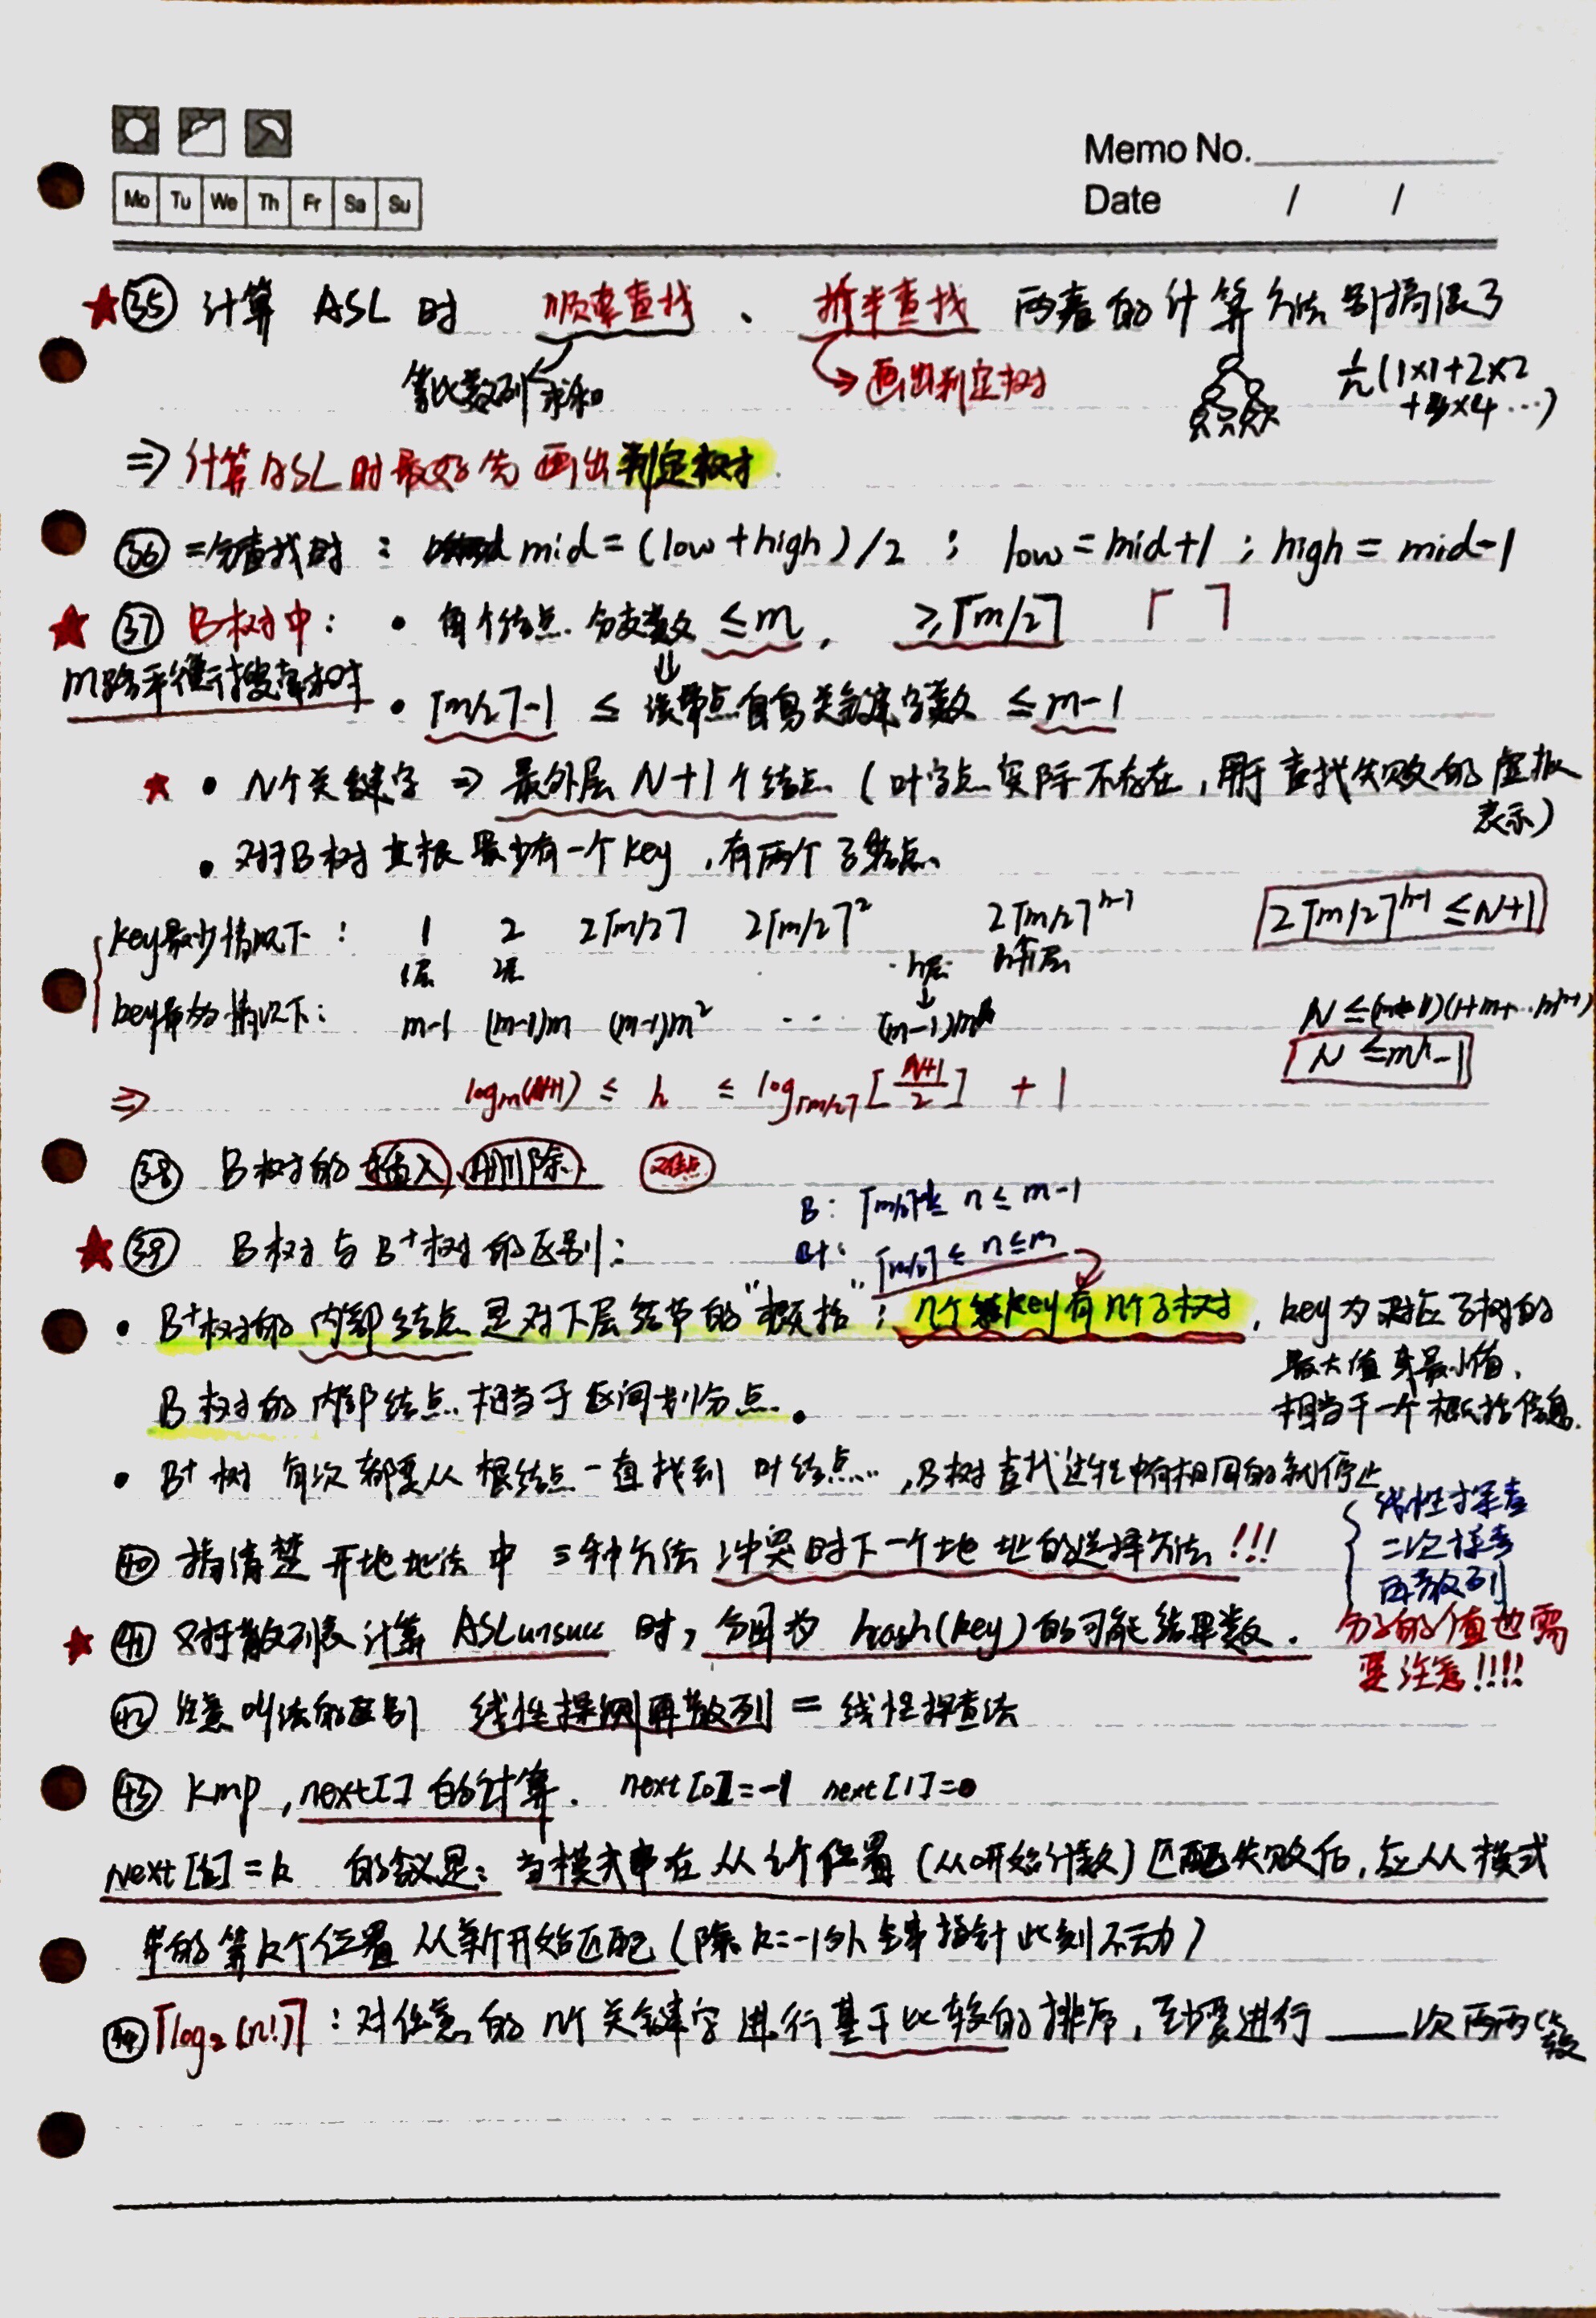 Memo No.
Mo Tu We Th Fr Sa Su
Date / /
★㉟ 计算 ASL 时 顺序查找 、 折半查找 两者的计算方法别搞混了
等比数列求和 画出判定树 1/n(1×1+2×2
+3×4…)
⇒计算ASL时最好先画出判定树.
㊱ 二分查找时: mid=(low+high)/2 ; low=mid+1 ; high=mid-1
★ ㊲ B树中: • 每个结点 分支数 ≤m, ≥⌈m/2⌉ ⌈ ⌉
m路平衡搜索树
• ⌈m/2⌉-1 ≤ 该节点自身关键字数 ≤m-1
★ • N个关键字 ⇒ 最外层 N+1个结点 (叶子点实际不存在,用于查找失败的虚拟
表示)
• 对于B树 其根最少有一个key,有两个子结点.
key最少情况下: 1 2 2⌈m/2⌉ 2⌈m/2⌉² 2⌈m/2⌉ʰ⁻¹ 2⌈m/2⌉ʰ⁻¹ ≤N+1
1层 2层 h层
key最多情况下: m-1 (m-1)m (m-1)m² … N≤(m-1)(1+m+…mʰ⁻¹)
N≤mʰ-1
⇒ logm(N+1) ≤ h ≤ log⌈m/2⌉[(N+1)/2] + 1
㊳ B树的插入、删除. 难点
B: ≤ n ≤ m-1
★ ㊴ B树与B⁺树的区别:
B+: ⌈m/2⌉ ≤ n≤m
• B⁺树的内部结点是对下层结节的"概括"; n个key有n个子树, key为对应子树的
最大值或最小值,
B树的内部结点.相当于区间划分点.
相当于一个概括信息.
• B⁺树 每次都要从根结点一直找到 叶结点..,B树查找过程中有相同的就停止
㊵ 搞清楚开地址法中 三种方法 冲突时下一个地址的选择方法!!!
线性探查
二次探查
再散列
★ ㊶ 对于散列表计算 ASLunsucc 时, 分母为 hash(key)的可能结果数.
分子的值也需
要注意!!!!
㊷ 注意叫法的区别 线性探测再散列 = 线性探查法
㊸ Kmp,next[]的计算. next[0]=-1 next[1]=0
next[i]=k 的含义是: 当模式串在从i个位置(从0开始计数)匹配失败后,应从模式
串的第k个位置从新开始匹配(除k=-1外主串指针此刻不动)
㊹⌈log₂(n!)⌉: 对任意的n个关键字进行基于比较的排序,至少要进行____次两两比较